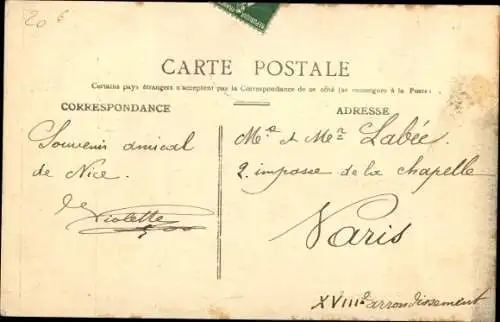 20 €
CARTE POSTALE
Certains pays étrangers n'acceptent pas la Correspondance de ce côté (se renseigner à la Poste)
CORRESPONDANCE
ADRESSE
Souvenir amical
de Nice.
de
Violette
Me et Mer Labée.
2. impasse de la chapelle
Paris
XVIIIe arrondissement